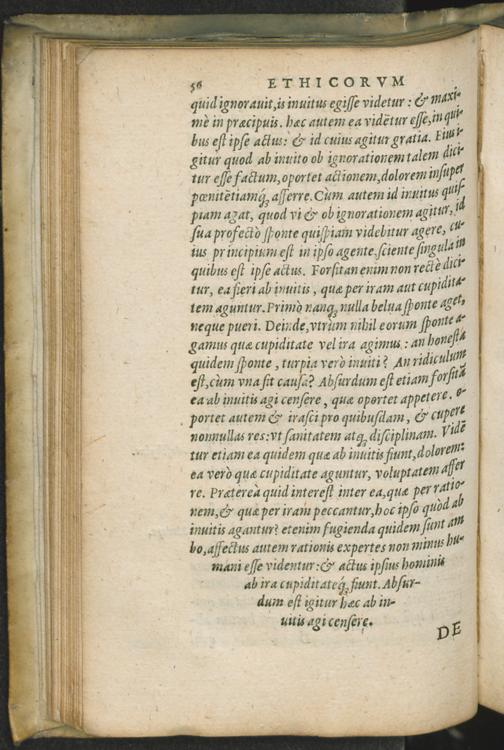 56 ETHICORVM
quid ignorauit, is inuitus egisse videtur: & maxi-
mè in præcipuis. hæc autem ea vidētur esse, in qui-
bus est ipse actus: & id cuius agitur gratia. Eius i-
gitur quod ab inuito ob ignorationem talem dici-
tur esse factum, oportet actionem, dolorem insuper
pœnitētiamq́ȝ afferre. Cùm autem id inuitus quis-
piam agat, quod vi & ob ignorationem agitur, id
sua profectò sponte quispiam videbitur agere, cu-
ius principium est in ipso agente, sciente singula in
quibus est ipse actus. Forsitan enim non rectè dici-
tur, ea fieri ab inuitis, quæ per iram aut cupidita-
tem aguntur. Primò nanqȝ nulla belua sponte aget,
neque pueri. Deinde, vtrùm nihil eorum sponte a-
gamus quæ cupiditate vel ira agimus: an honesta
quidem sponte, turpia verò inuiti? An ridiculum
est, cùm vna sit causa? Absurdum est etiam forsitā
ea ab inuitis agi censere, quæ oportet appetere. o-
portet autem & irasci pro quibusdam, & cupere
nonnullas res: vt sanitatem atqȝ disciplinam. Vidē
tur etiam ea quidem quæ ab inuitis fiunt, dolorem:
ea verò quæ cupiditate aguntur, voluptatem affer
re. Prætereà quid interest inter ea, quæ per ratio-
nem, & quæ per iram peccantur, hoc ipso quòd ab
inuitis agantur? etenim fugienda quidem sunt am
bo, affectus autem rationis expertes non minus hu-
mani esse videntur: & actus ipsius hominis
ab ira cupiditateq́ȝ fiunt. Absur-
dum est igitur hæc ab in-
uitis agi censere.
DE